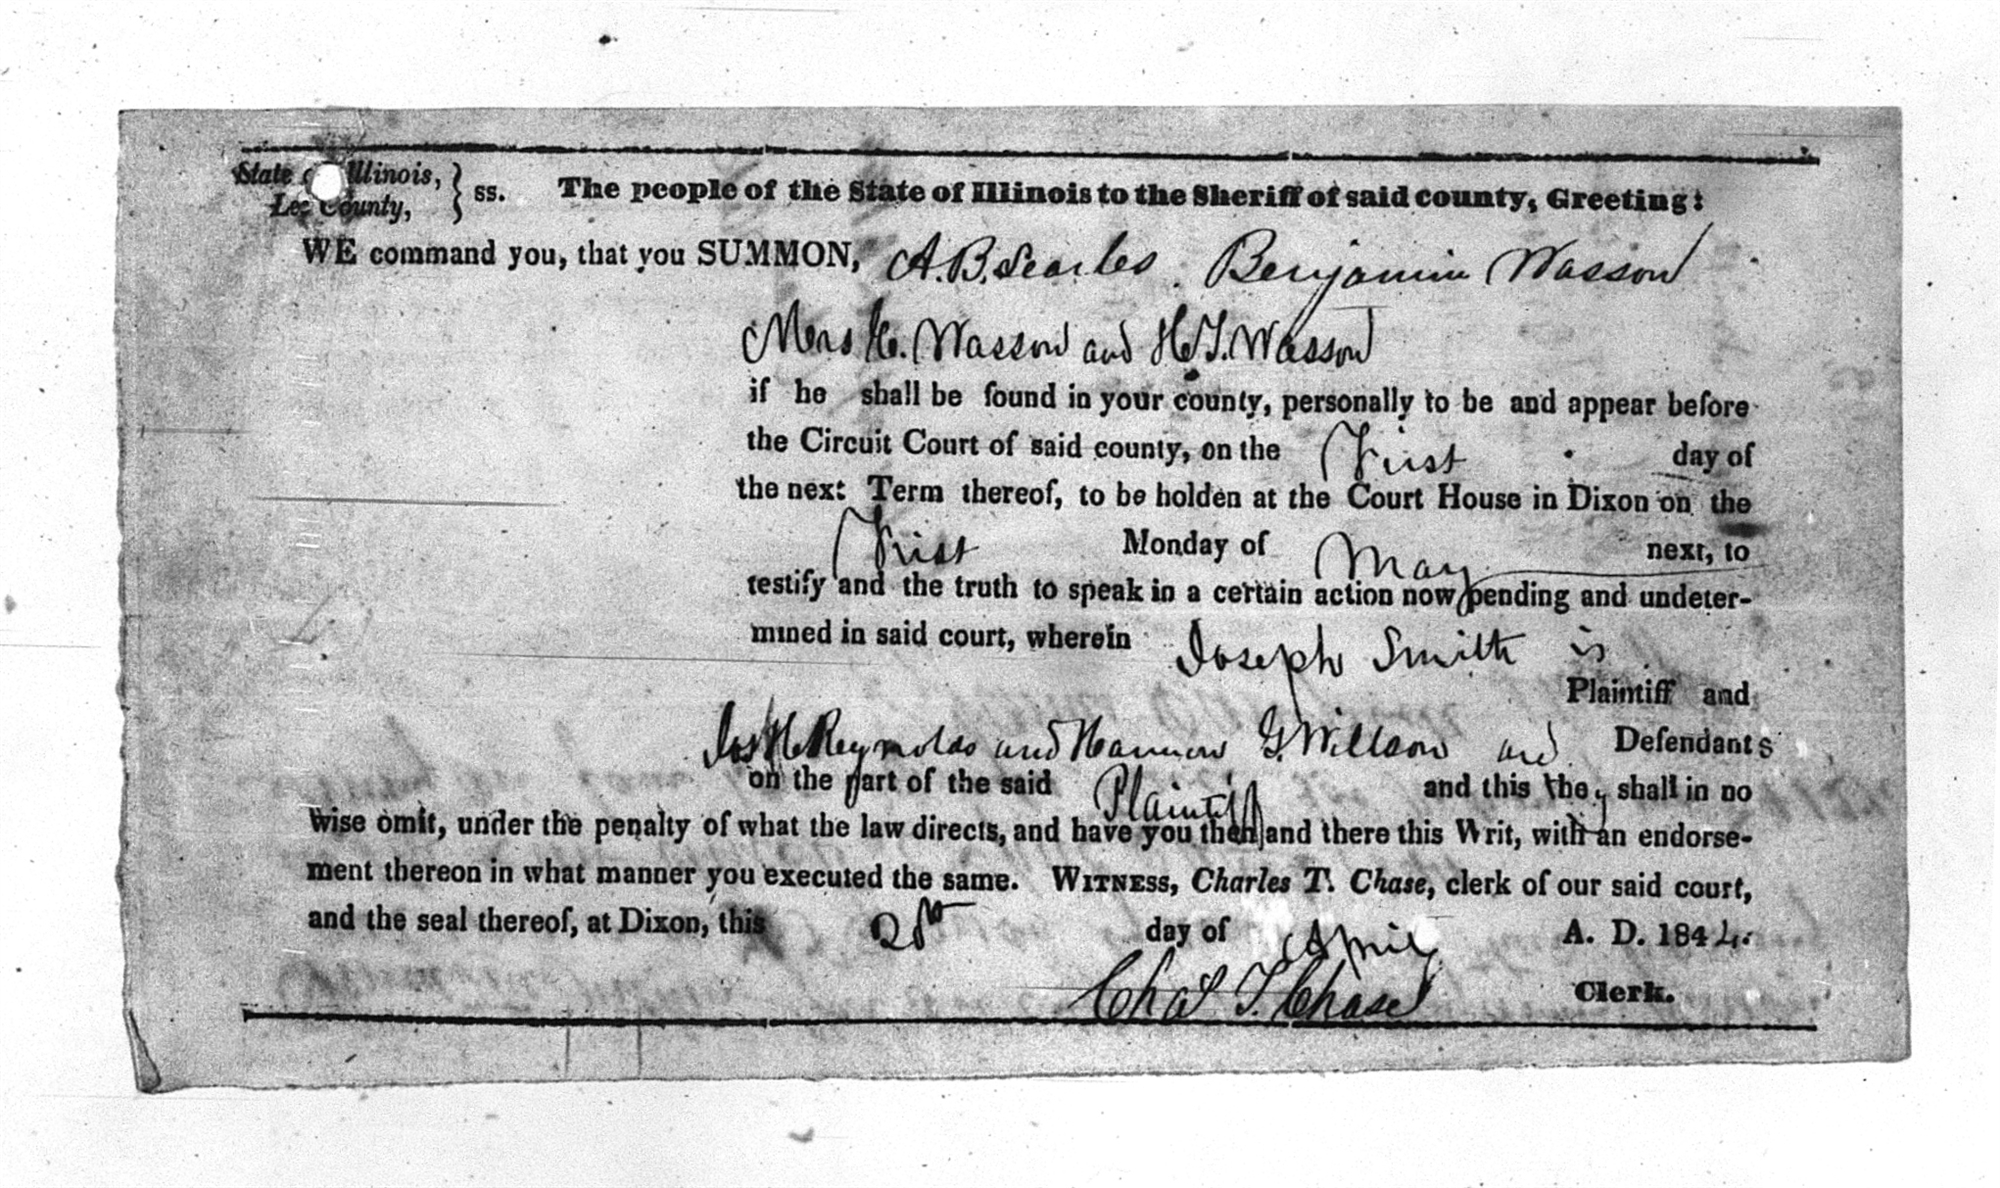 State of Illinois, } ss. The people of the State of Illinois to the Sheriff of said county, Greeting:
Lee County,
WE command you, that you SUMMON, A. B. Searles. Benjamin Wasson
Mrs H. Wasson and H T. Wasson
if he shall be found in your county, personally to be and appear before
the Circuit Court of said county, on the First day of
the next Term thereof, to be holden at the Court House in Dixon on the
First Monday of May next, to
testify and the truth to speak in a certain action now pending and undeter-
mined in said court, wherein Joseph Smith is
Plaintiff and
Jos H. Reynolds and Harmon G. Willson are Defendants
on the part of the said Plaintiff and this they shall in no
wise omit, under the penalty of what the law directs, and have you then and there this Writ, with an endorse-
ment thereon in what manner you executed the same. WITNESS, Charles T. Chase, clerk of our said court,
and the seal thereof, at Dixon, this day of April A. D. 1844.
Chas T. Chase Clerk.